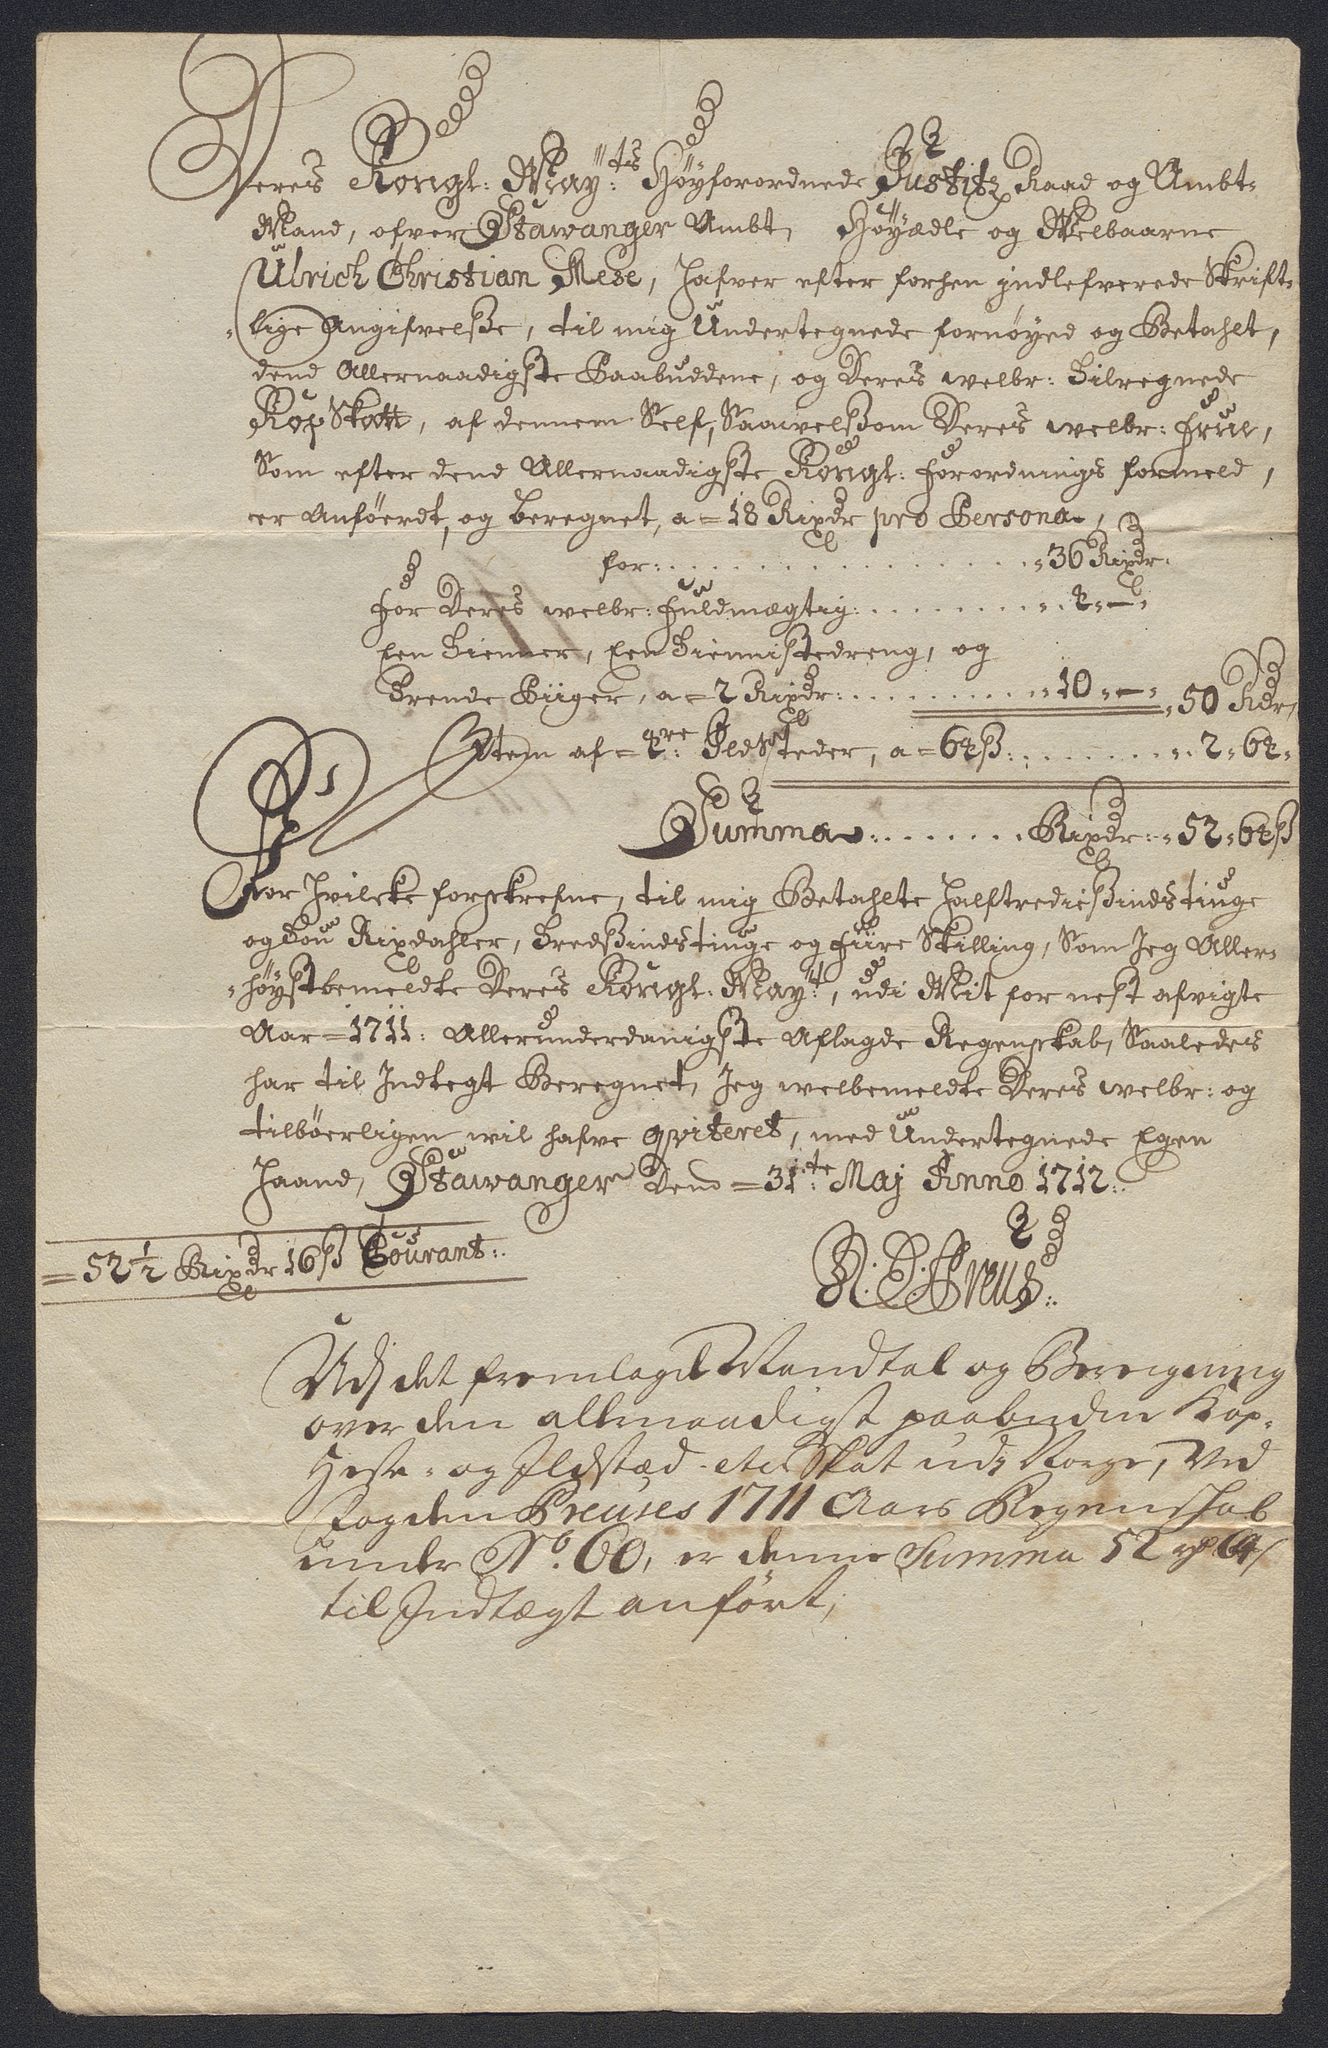 Deres Kongl: May:ts Høyforordnede Justitz Raad og Ambt-
Mand, ofver Stawanger Ambt, Høyædle og Welbaarne
Ulrich Christian Nese, hafver efter forhen indlefverede Skrift-
-lige Angifvelsse, til mig Undertegnede fornøyed og Betahlt,
dend Allernaadigste Paabuddene, og Deres welbr: Tilregnede
KopSkatt, af dennem Self, Saavelssom Deres welbr: Frue,
Som efter dend Allernaadigste Kongl: Forordnings formeld,
er Anføerdt, og beregnet, a = 18 Rixdr pro Persona,
for: . . . . . 36 Rixdr.
For Deres welbr: Fuldmægtig: . . . . . 4 „ — „
Een Tienner, Een Tiennistedreng, og
Trende Piiger, a = 2 Rixdr: . . . . . 10 „ — „ 50 Rdr,
Item af = 4re: IldSteder, a = 64 ß: . . . . . 2 „ 64 „
Summa: . . . . . Rixdr: „ 52 „ 64 ß
For hvilcke forskrefne, til mig Betahlte halftrediessindstiuge
og Tou Rixdahler, Tredssindstiuge og Fiire Skilling, Som Jeg Aller-
-høystbemeldte Deres Kongl: May:t, udi Mit for nest afvigte
Aar = 1711: Allerunderdanigste Aflagde Regenskab, Saaledes
har til Indtegt Beregnet, Jeg welbemeldte Deres welbr: og
tilbøerligen wil hafve qviteret, med Undertegnede Egen
Haand, Stawanger Dend = 31:te Maj Anno 1712:.
= 52 1/2 Rixdr 16 ß Courant:.
Preus:.
Udj det fremlagde Mandtal og Beregning
over den allernaadigst paabudne Kop-
Heste- og Ildstæd etc Skat udj Norge, Ved
Fogden Preuses 1711 Aars Regenskab
under No. 60, er denne Summa 52 rd 64 ß
til Indtægt anført,